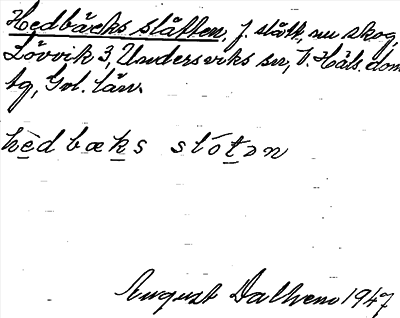 Hedbäcks slåtten, f. slått, nu skog,
Lövvik 3, Undersviks sn, V. Häls. dom
sg, Gvl. län.
hèdbæks slótən
August Dalhem 1947